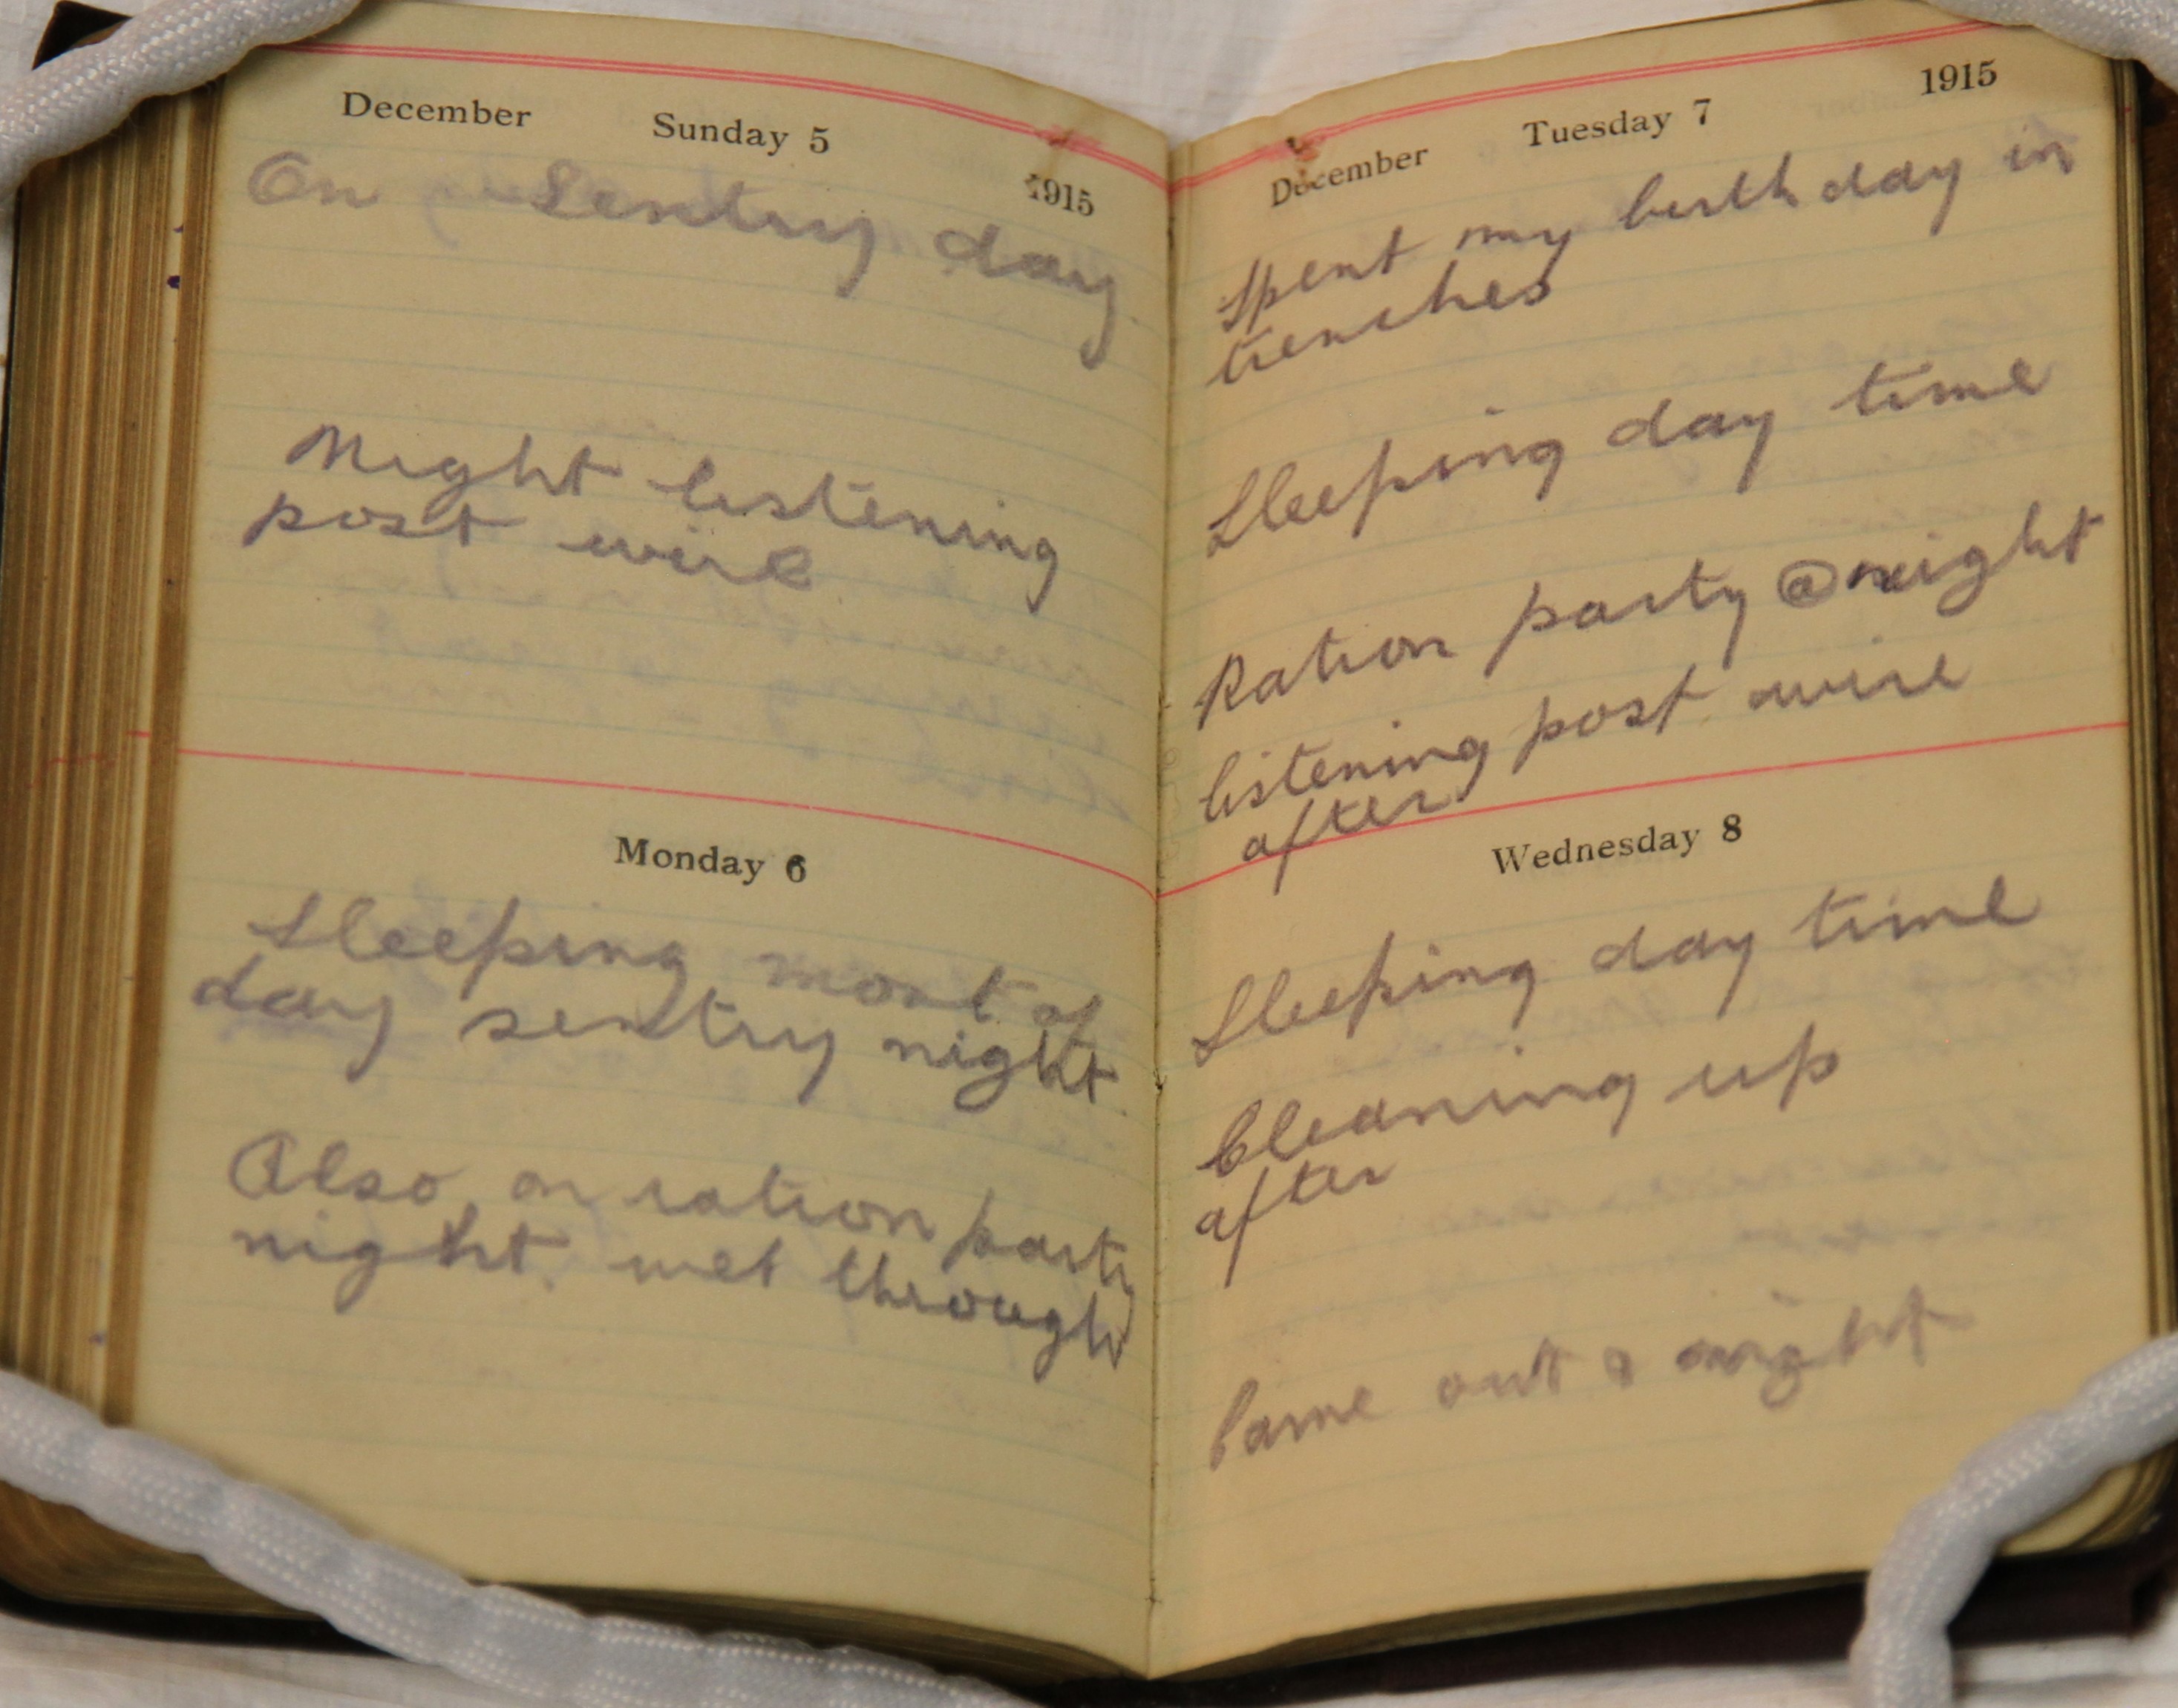 December Sunday 5 1915
On Sentry day
Night listening
post wire
Monday 6
Sleeping most of
day sentry night
Also on ration party
night wet through
December Tuesday 7 1915
Spent my birthday in
trenches
Sleeping day time
Ration party @ night
listening post wire
after
Wednesday 8
Sleeping day time
Cleaning up
after
Came out night